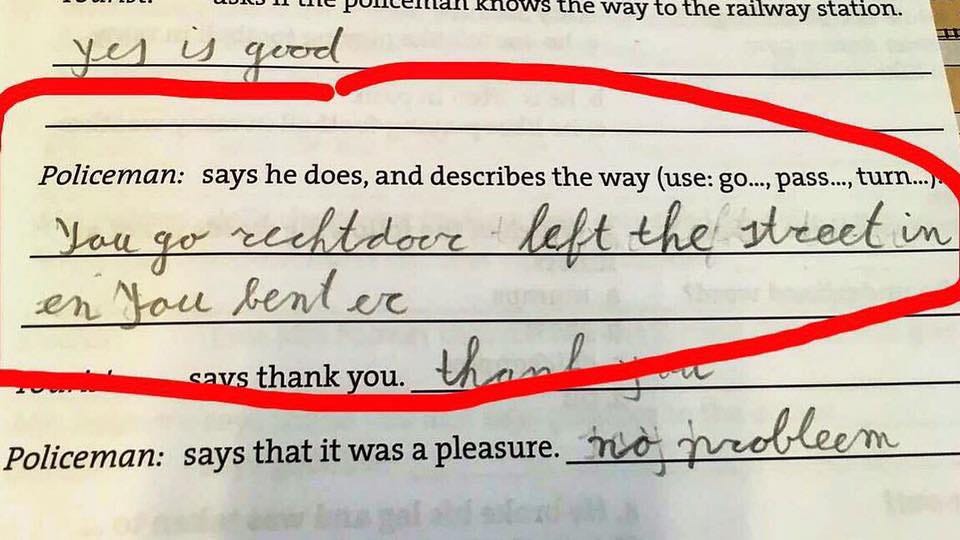 asks if the policeman knows the way to the railway station.
yes is good
Policeman: says he does, and describes the way (use: go..., pass..., turn...).
You go rechtdoor left the street in
en You bent er
says thank you. thank you
Policeman: says that it was a pleasure. no, probleem